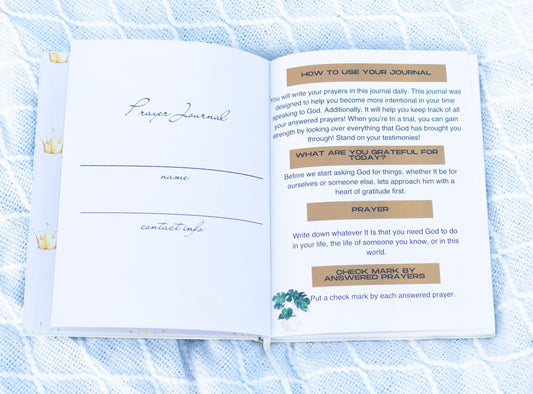 Prayer Journal
name
contact info
HOW TO USE YOUR JOURNAL
You will write your prayers in this journal daily. This journal was
designed to help you become more intentional in your time
speaking to God. Additionally, It will help you keep track of all
your answered prayers! When you're In a trial, you can gain
strength by looking over everything that God has brought you
through! Stand on your testimonies!
WHAT ARE YOU GRATEFUL FOR
TODAY?
Before we start asking God for things, whether It be for
ourselves or someone else, lets approach him with a
heart of gratitude first.
PRAYER
Write down whatever It Is that you need God to do
in your life, the life of someone you know, or in this
world.
CHECK MARK BY
ANSWERED PRAYERS
Put a check mark by each answered prayer.